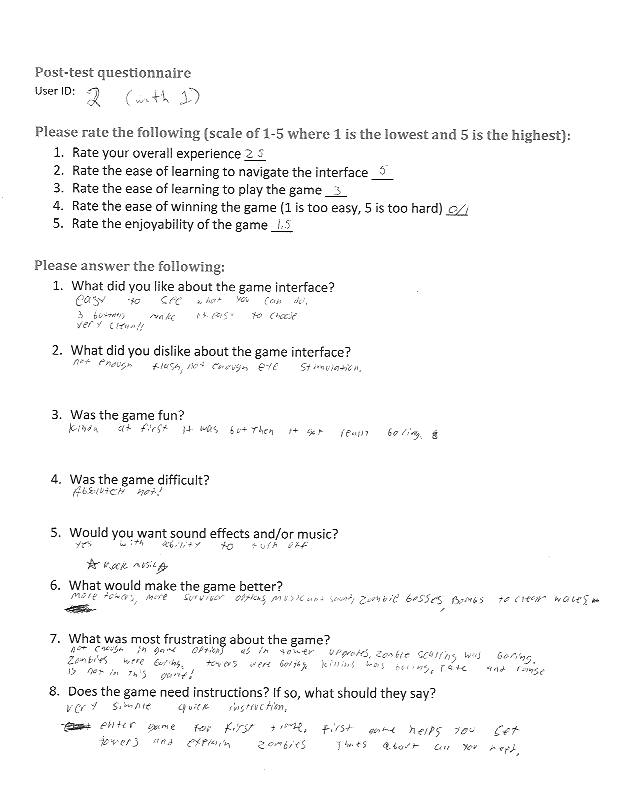 Post-test questionnaire
User ID: 2 (with 1)
Please rate the following (scale of 1-5 where 1 is the lowest and 5 is the highest):
1. Rate your overall experience 2.5
2. Rate the ease of learning to navigate the interface 5
3. Rate the ease of learning to play the game 3
4. Rate the ease of winning the game (1 is too easy, 5 is too hard) 0/1
5. Rate the enjoyability of the game 1.5
Please answer the following:
1. What did you like about the game interface?
easy to see what you can do,
3 buttons make it easy to choose
very clean!!
2. What did you dislike about the game interface?
not enough flash, not enough eye stimulation.
3. Was the game fun?
kinda at first it was but then it got really boring.
4. Was the game difficult?
Absolutely not!
5. Would you want sound effects and/or music?
yes with ability to turn off
☆ Rock music ☆
6. What would make the game better?
more towers, more survivor options, music and sound, zombie bosses, Bombs to clear waves
7. What was most frustrating about the game?
not enough in game options as in tower upgrades, zombie scaling was boring.
Zombies were boring, towers were boring, killing was boring, rate and range
is not in this game!
8. Does the game need instructions? If so, what should they say?
very simple quick instruction,
enter game for first time, first game helps you set
towers and explain zombies Thats about all you need,